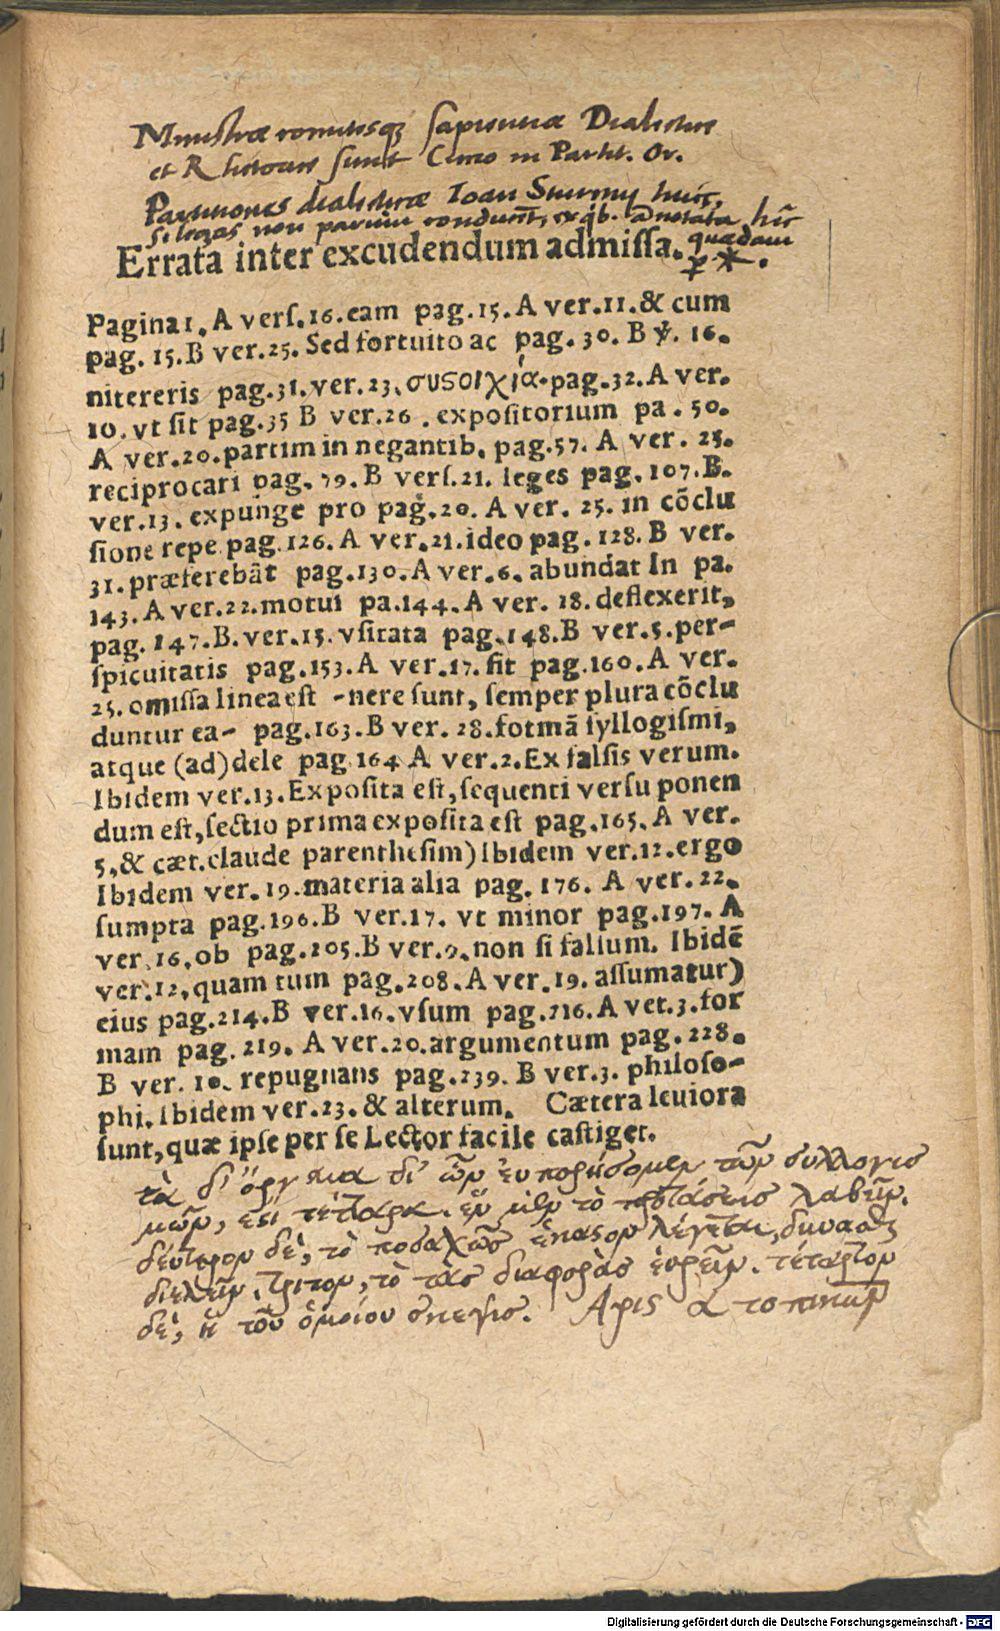 Ministrae comitesq; sapientiae Dialectice
et Rhetorice sunt Cicero in Partit. Or.
Partitiones dialecticae Ioan Sturmij huic,
si legas non parum conducūt, ex qb. ānotata hīc
quaedam
Errata inter excudendum admissa. p *.
Pagina 1. A vers. 16. eam pag. 15. A ver. 11. & cum
pag. 15. B ver. 25. Sed fortuito ac pag. 30. B ℣. 16.
nitereris pag. 31. ver. 23. συϛοιχία. pag. 32. A ver.
10. vt sit pag. 35 B ver. 26. expositorium pa. 50.
A ver. 20. partim in negantib. pag. 57. A ver. 25.
reciprocari pag. 79. B vers. 21. leges pag. 107. B.
ver. 13. expunge pro pag. 20. A ver. 25. in cōclu
sione repe pag. 126. A ver. 21. ideo pag. 128. B ver.
31. præferebāt pag. 130. A ver. 6. abundat In pa.
143. A ver. 22. motui pa. 144. A ver. 18. deflexerit,
pag. 147. B. ver. 15. vsitata pag. 148. B ver. 5. per-
spicuitatis pag. 153. A ver. 17. sit pag. 160. A ver.
25. omissa linea est -nere sunt, semper plura cōclu
duntur ea- pag. 163. B ver. 28. formā syllogismi,
atque (ad) dele pag 164 A ver. 2. Ex falsis verum.
Ibidem ver. 13. Exposita est, sequenti versu ponen
dum est, sectio prima exposita est pag. 165. A ver.
5, & cæt. claude parenthesim) Ibidem ver. 12. ergo
Ibidem ver. 19. materia alia pag. 176. A ver. 22.
sumpta pag. 196. B ver. 17. vt minor pag. 197. A
ver. 16. ob pag. 205. B ver. 9. non si falsum. Ibidē
ver. 12, quam tum pag. 208. A ver. 19. assumatur)
eius pag. 214. B ver. 16. vsum pag. 216. A ver. 3. for
mam pag. 219. A ver. 20. argumentum pag. 228.
B ver. 10. repugnans pag. 239. B ver. 3. philoso-
phi. Ibidem ver. 23. & alterum. Cætera leuiora
sunt, quæ ipse per se Lector facile castiget.
τὰ δὲ ὄργανα δι' ὧν εὐπορήσομεν τῶν συλλογισ
μῶν, ἐϛι τέτταρα. ἓν μὲν τὸ προτάσεις λαβεῖν.
δεύτερον δὲ, τὸ ποσαχῶς ἕκαϛον λέγεται, δύνασθαι
διελεῖν. τρίτον, τὸ τὰς διαφορὰς εὑρεῖν. τέταρτον
δὲ, ἡ τοῦ ὁμοίου σκέψις. Αριϛ α τοπικῶν
Digitalisierung gefördert durch die Deutsche Forschungsgemeinschaft - DFG